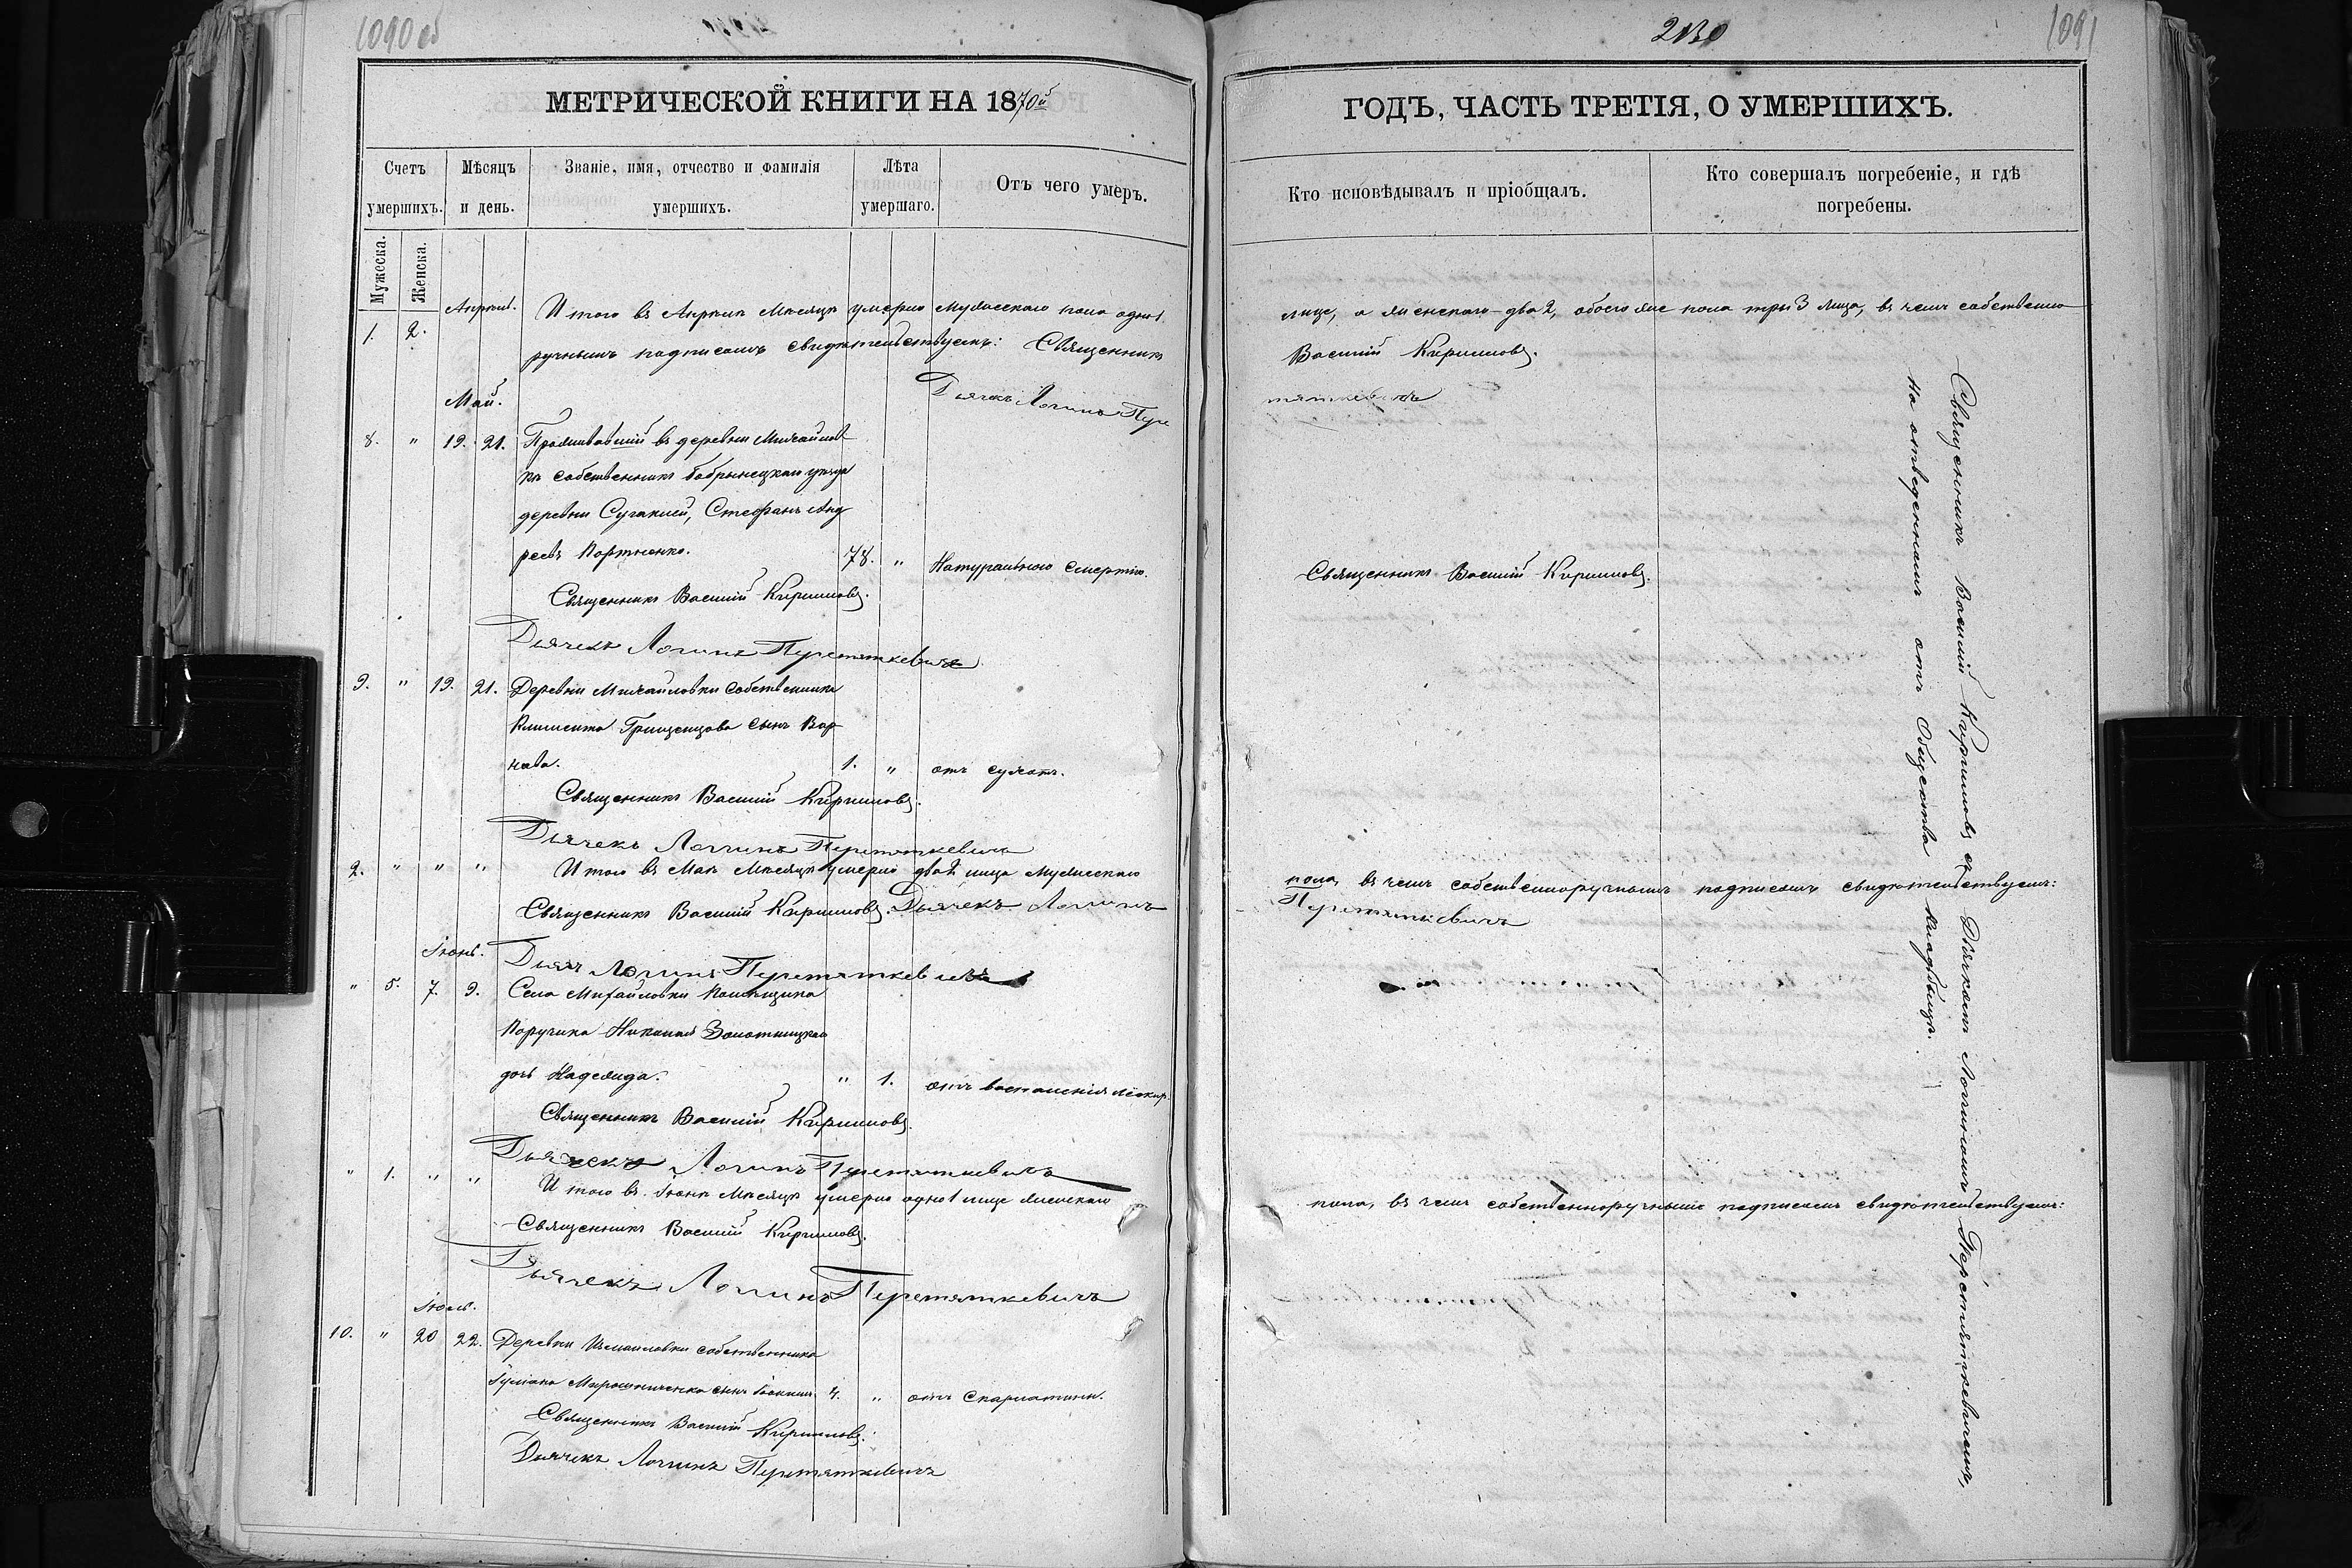 1090 об
МЕТРИЧЕСКОЙ КНИГИ НА 1870й
Счетъ умершихъ.
Мѣсяцъ и день.
Званіе, имя, отчество и фамилія умершихъ.
Лѣта умершаго.
Отъ чего умеръ.
Мужеска.
Женска.
Апрѣль.
1. 2. Итого въ Апрѣлѣ мѣсяцѣ умерло мужескаго пола одно 1
ручнымъ подписомъ свидѣтельствуемъ: Священникъ
Дьячекъ Логинъ Пере
Май.
8. " 19. 21. Проживавшій въ деревнѣ Михайлов
кѣ собственникъ Бобринецкаго уѣзда
деревни Сугаклей, Стефанъ Анд
реевъ Портненко. 78. " Натуральною смертію.
Священникъ Василій Кирилловъ.
Дьячекъ Логинъ Перетяткевичъ
9. " 19. 21. Деревни Михайловки собственника
Климента Грищенцова сынъ Вар
нава. 1. " отъ сухотъ.
Священникъ Василій Кирилловъ.
Дьячекъ Логгинъ Перетяткевичъ
2. " " " Итого въ Маѣ мѣсяцѣ умерло два 2 лица мужескаго
Священникъ Василій Кирилловъ. Дьячекъ Логинъ
Іюнь.
Дьяч Логинъ Перетяткевичъ
" 5. 7. 9. Села Михайловки помѣщика
Поручика Николая Золотницкаго
дочь Надежда. " 1. отъ воспаленія
Священникъ Василій Кирилловъ.
Дьячекъ Логинъ Перетяткевичъ
" 1. " " Итого въ Іюнѣ мѣсяцѣ умерло одно 1 лице женскаго
Священникъ Василій Кирилловъ.
Дьячекъ Логгинъ Перетяткевичъ
Іюль.
10. " 20 22. Деревни Измаиловки собственника
Іуліана Мирошниченка сынъ 4. " отъ скарлатины.
Священникъ Василій Кирилловъ.
Дьячекъ Логгинъ Перетяткевичъ
2130
1091
ГОДЪ, ЧАСТЬ ТРЕТІЯ, О УМЕРШИХЪ.
Кто исповѣдывалъ и пріобщалъ.
Кто совершалъ погребеніе, и гдѣ погребены.
лице, а женскаго два 2, обоего же пола три 3 лица, въ чемъ собственно
Василій Кирилловъ.
тяткевичъ
Священникъ Василій Кирилловъ.
пола, въ чемъ собственноручнымъ подписомъ свидѣтельствуемъ:
Перетяткевичъ
пола, въ чемъ собственноручнымъ подписомъ свидѣтельствуемъ:
Священникъ Василій Кирилловъ съ Дьячкомъ Логгиномъ Перетяткевичемъ,
на отведенномъ отъ Общества кладбищѣ.